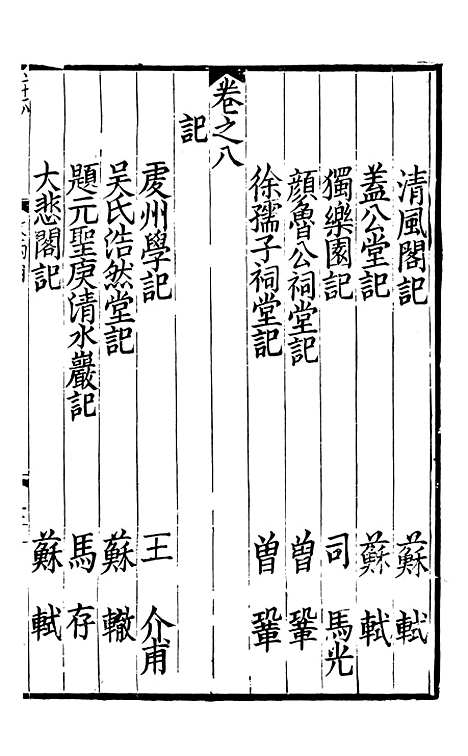 清風閣記 蘇軾
蓋公堂記 蘇軾
獨樂園記 司馬光
顔魯公祠堂記 曾鞏
徐孺子祠堂記 曾鞏
卷之八
記
䖏州學記 王介甫
吴氏浩然堂記 蘇轍
題元聖庚清水巖記 馬存
大悲閣記 蘇軾